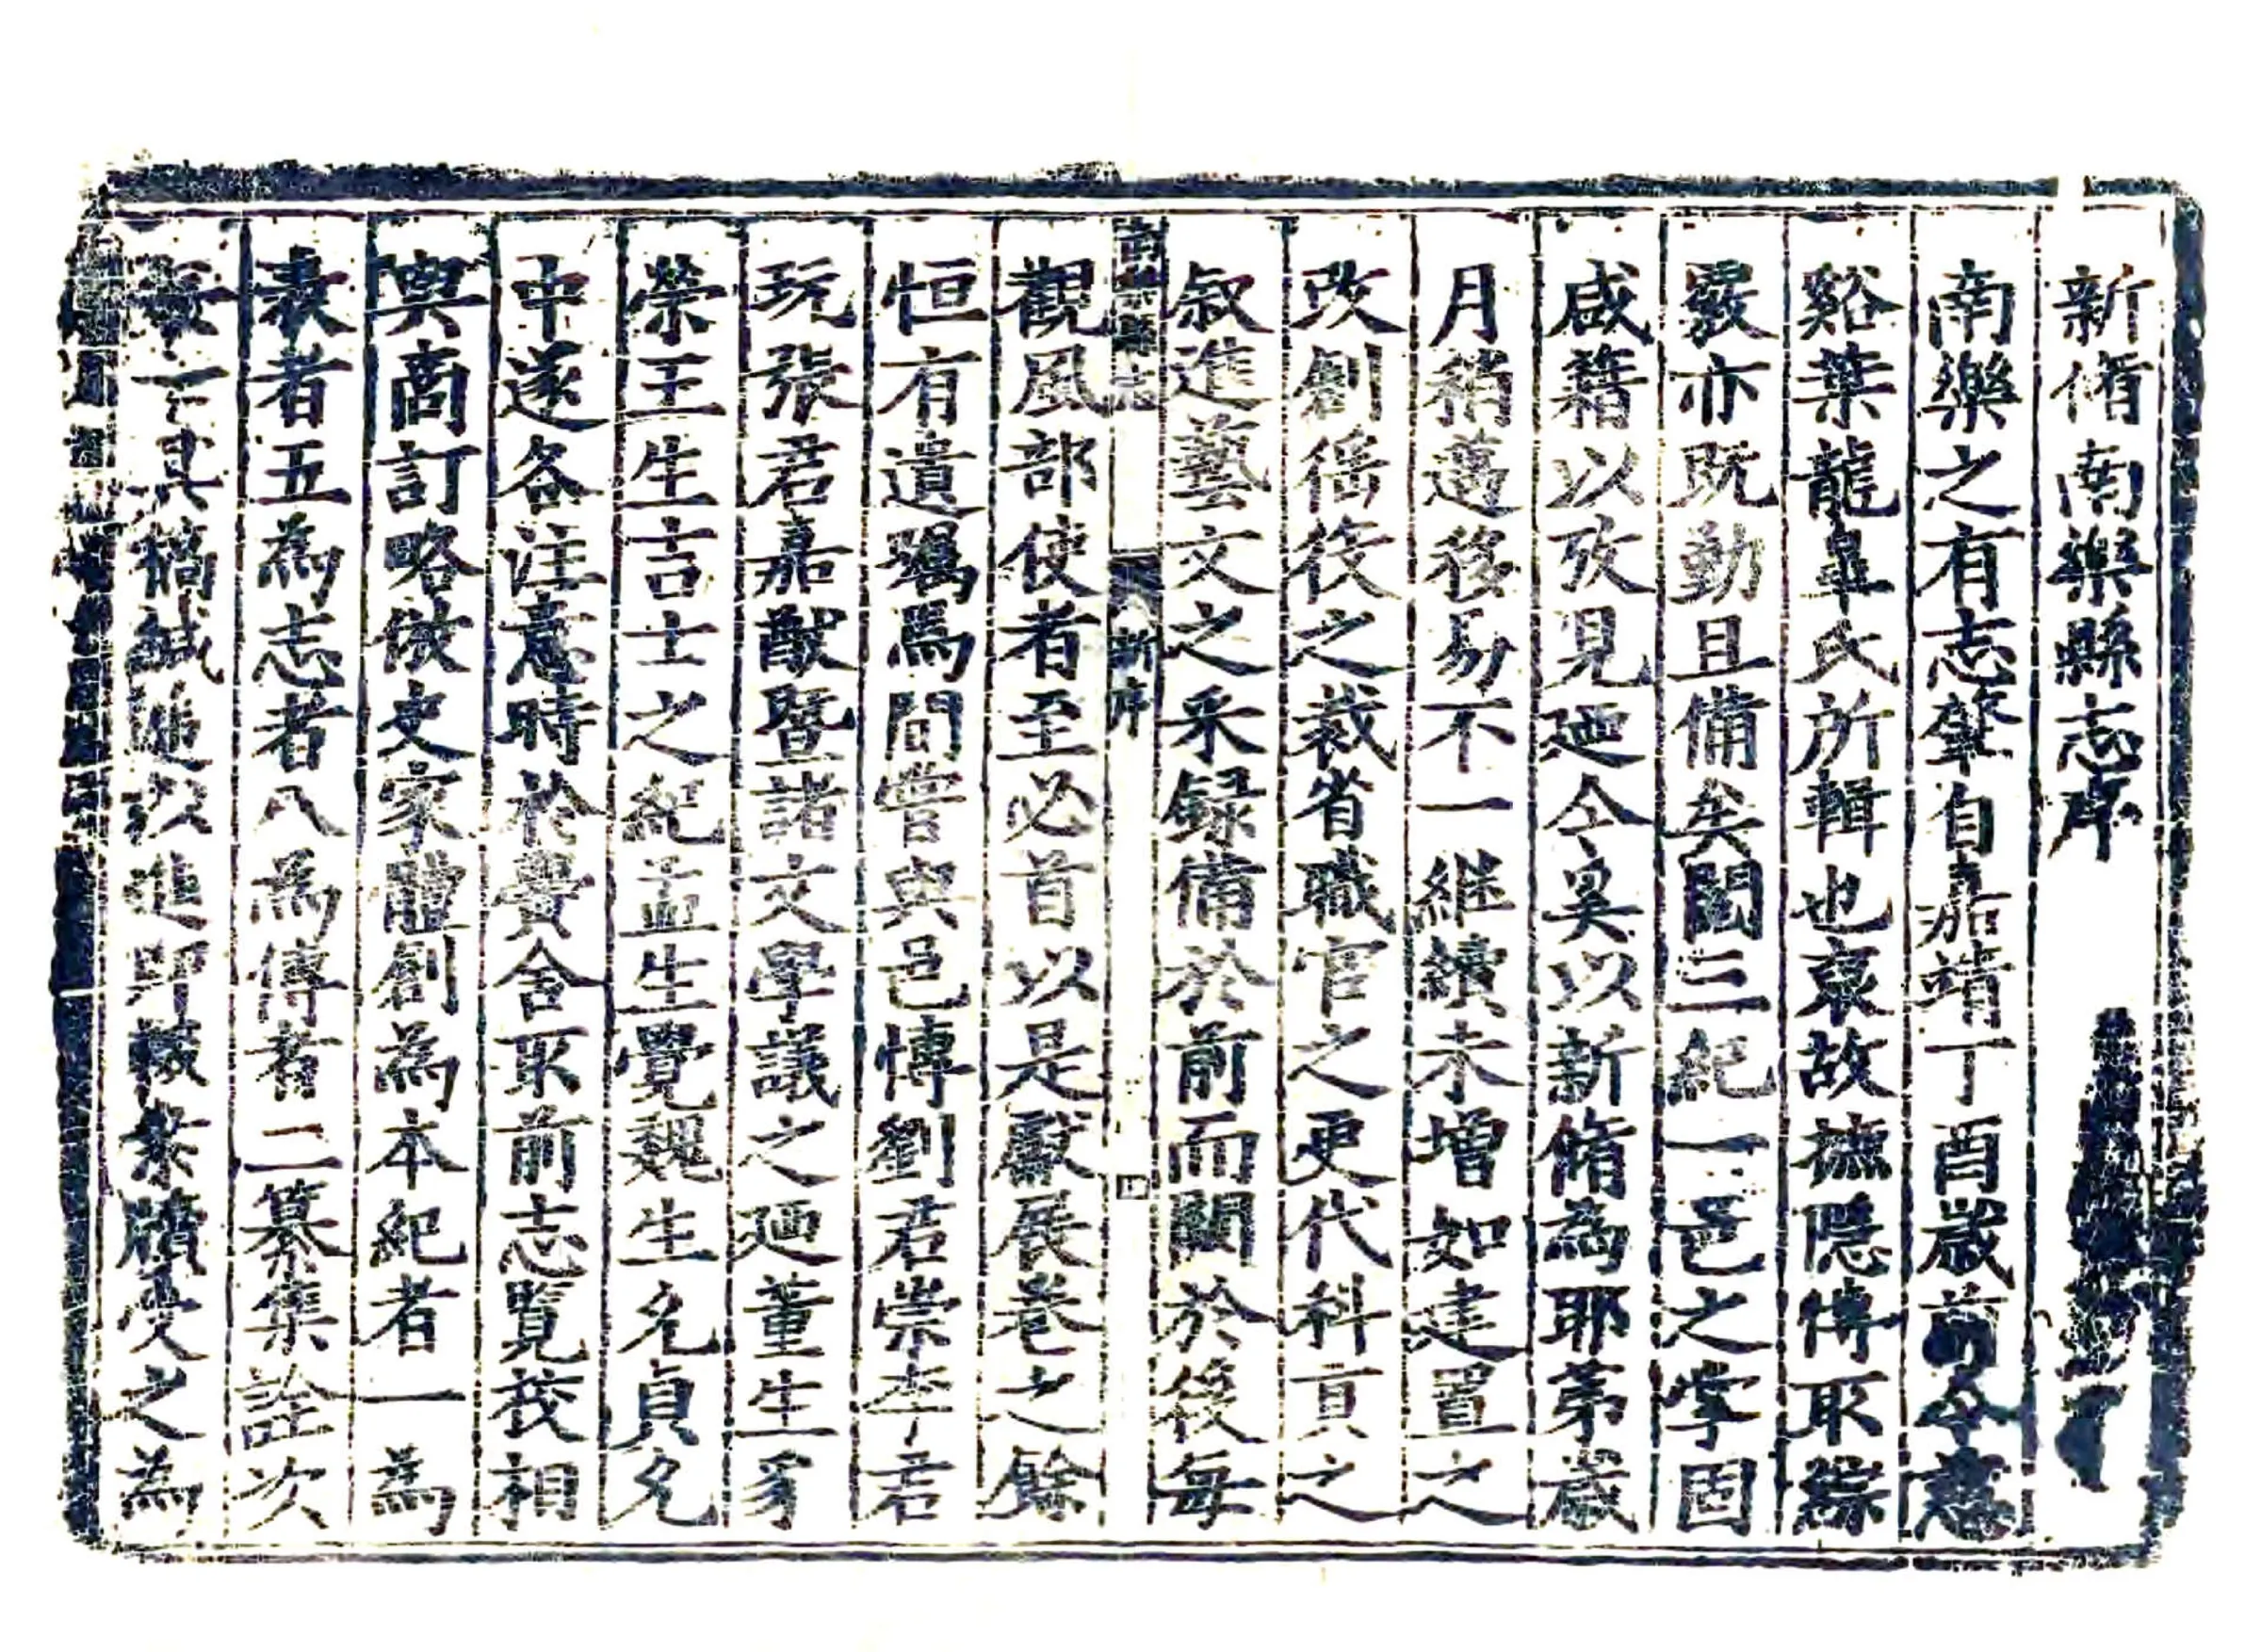 新脩南樂縣志序
南樂之有志肇自嘉靖丁酉歲前令慈
谿葉龍皐氏所輯也裒故摭隱傳取綜
覈亦既勤且備矣閱三紀一邑之掌固
咸籍以攷見廼今奚以新脩為耶苐歲
月稍邁移易不一継續未增如建置之
改創徭役之裁省職官之更代科貢之
叙進藝文之采録備於前而闕於後每
新序
觀風部使者至必首以是獻展巻之餘
恒有遺矚焉間甞與邑愽劉君崇李君
玩張君嘉猷暨諸文學議之廼董生豸
榮王生吉士之紀孟生覺魏生允貞允
中遂各注意時於黌舍取前志覽校相
與商訂略倣史家體創為本紀者一為
表者五為志者八為傳者二纂集詮次
其稿緘進以進即檄案牘受之為